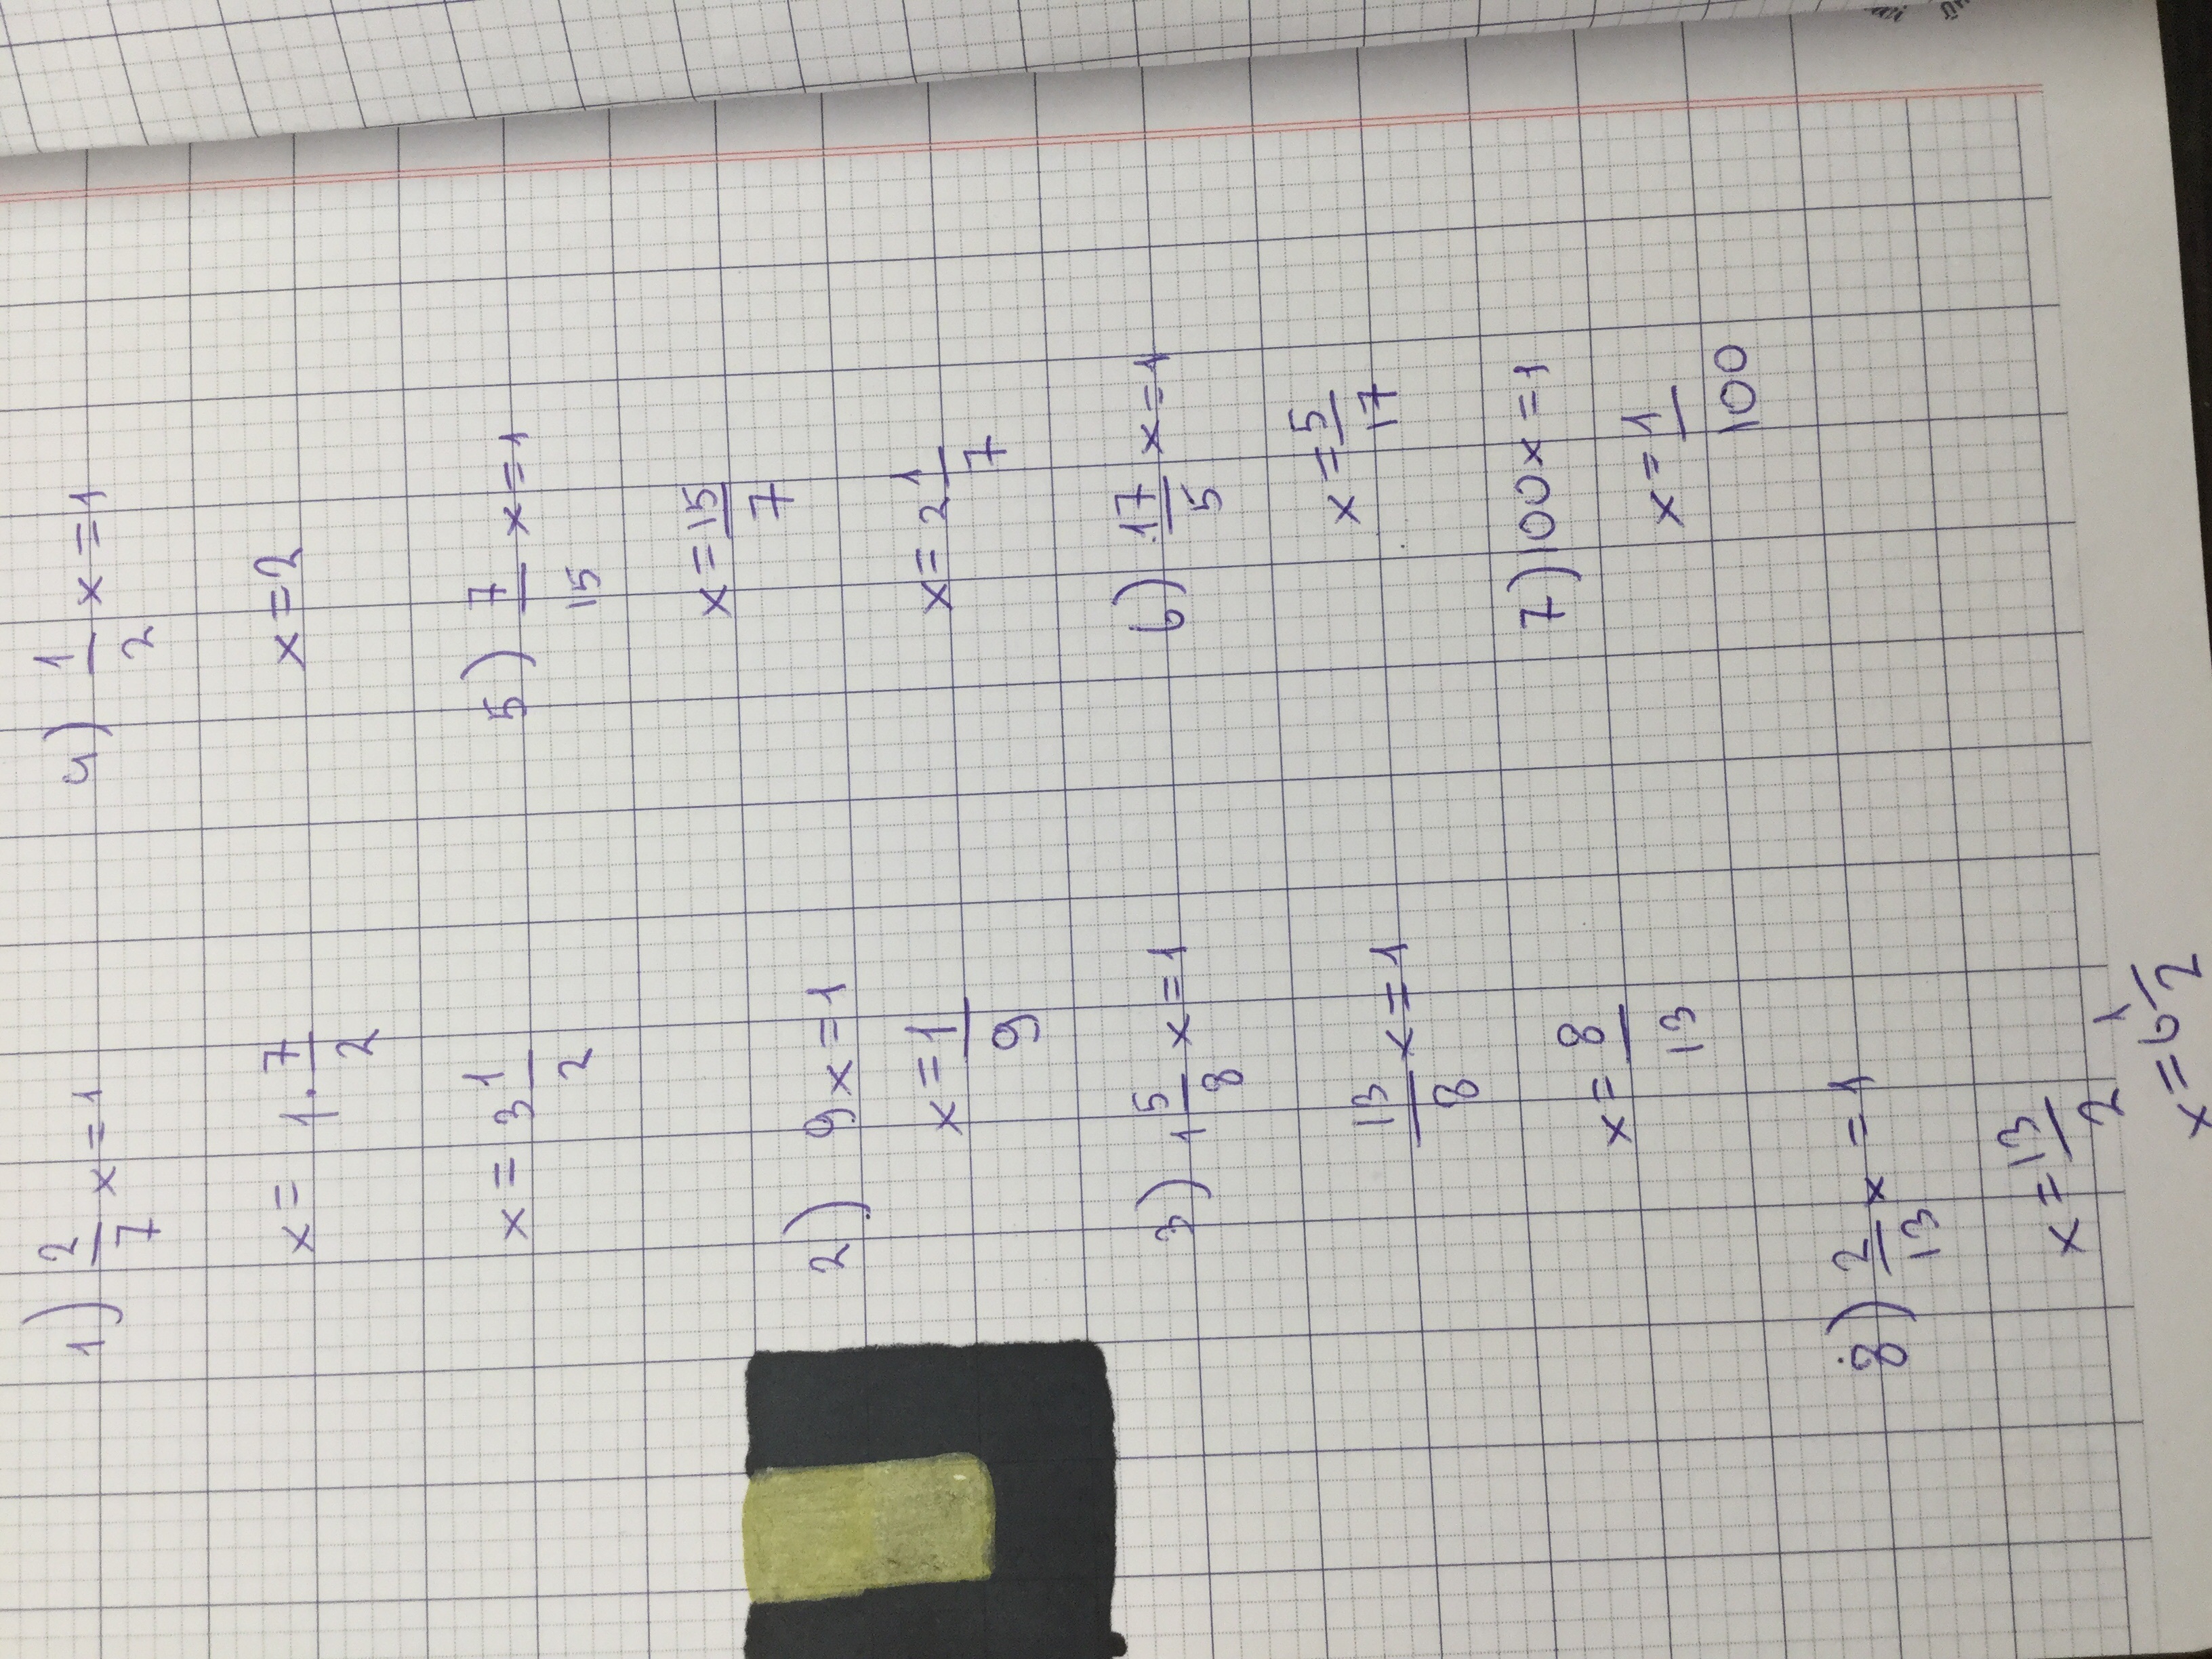 1) 2/7 x = 1
x = 1 · 7/2
x = 3 1/2
2) 9x = 1
x = 1/9
3) 1 5/8 x = 1
13/8 x = 1
x = 8/13
8) 2/13 x = 1
x = 13/2
x = 6 1/2
4) 1/2 x = 1
x = 2
5) 7/15 x = 1
x = 15/7
x = 2 1/7
6) 17/5 x = 1
x = 5/17
7) 100x = 1
x = 1/100